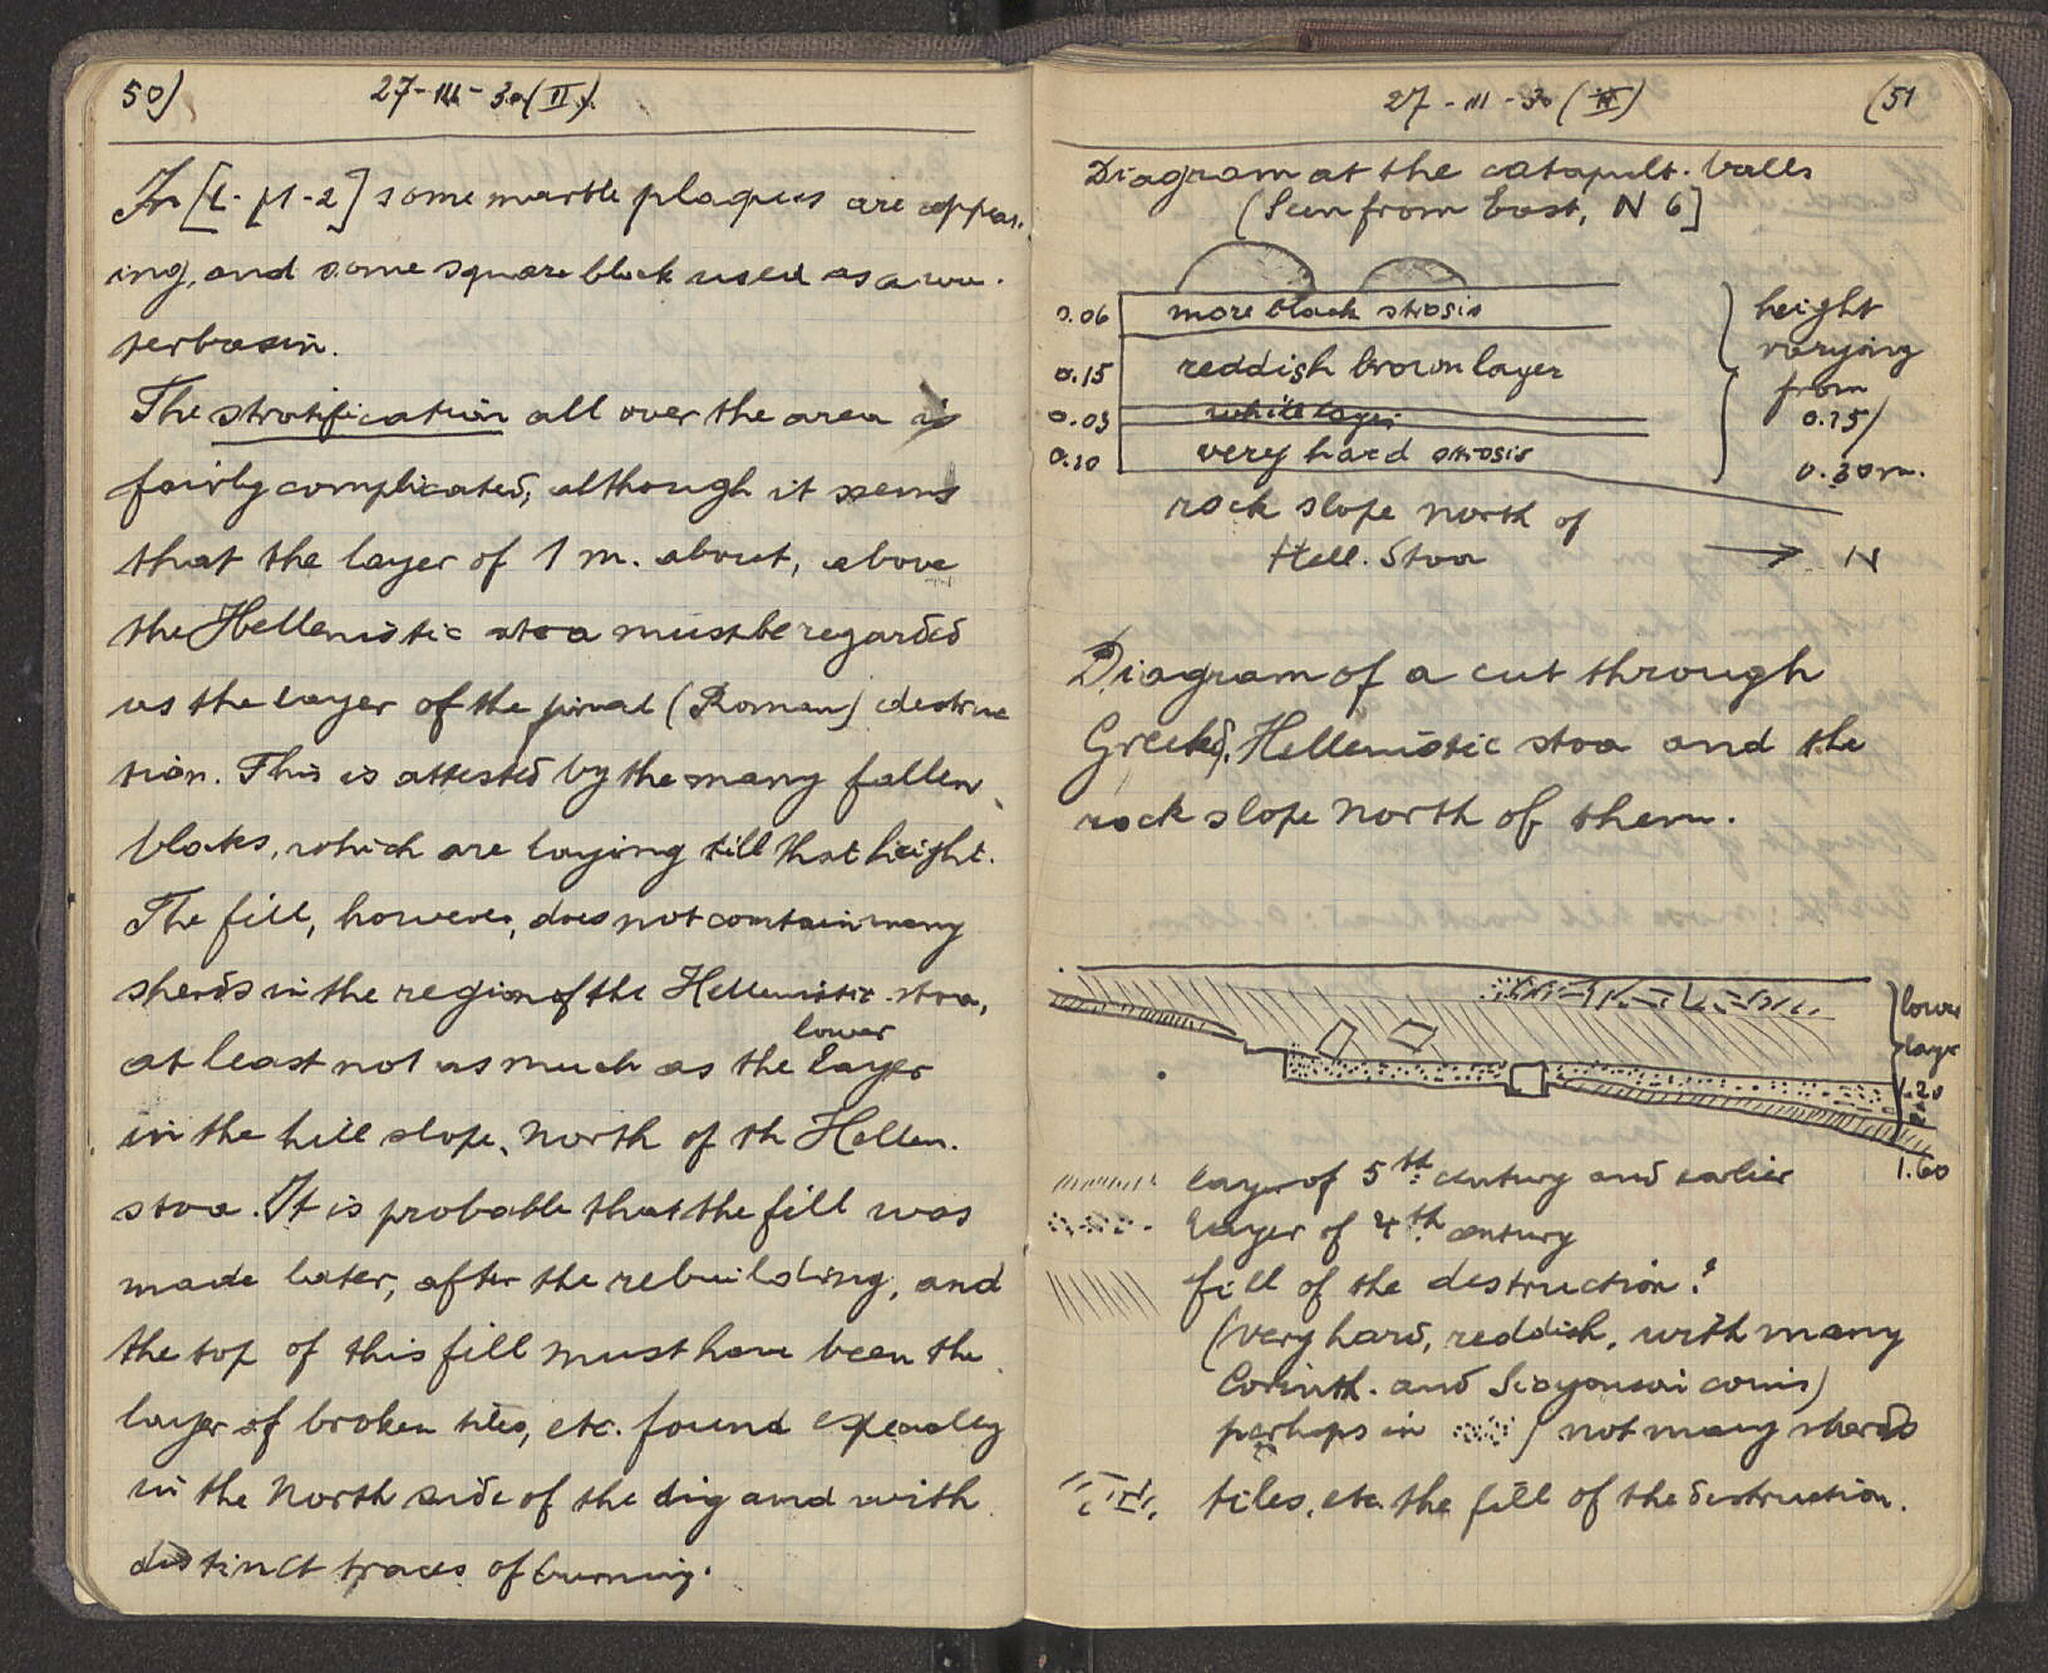 50)
27-III-30 (II).
In [L-M-2] some marble plaques are appear.
ing, and some square block used as a wa.
terbasin.
The stratification all over the area is
fairly complicated, although it seems
that the layer of 1 m. about, above
the Hellenistic stoa must be regarded
as the layer of the final (Roman) destruc
tion. This is attested by the many fallen
bloks, which are laying till that height.
The fill, however, does not contain many
sherds in the region of the Hellenistic stoa,
at least not as much as the lower layer
in the hill slope, north of th Hellen.
stoa. It is probable that the fill was
made later, after the rebuilding, and
the top of this fill must have been the
layer of broken tiles, etc. found especially
in the North side of the dig and with
distinct traces of burning.
27-III-30 (II)
(51
Diagram at the catapult. balls
(Seen from East, N 6]
0.06 more black strosis
0.15 reddish brown layer
0.03 white layer
0.10 very hard strosis
height
varying
from
0.25/
0.30 m.
rock slope north of
Hell. Stoa
N
Diagram of a cut through
Greek, Hellenistic stoa and the
rock slope north of them.
lower
laye
1.20
1.60
layer of 5th century and earlier
layer of 4th century
fill of the destruction?
(very hard, reddish, with many
Corinth. and coins)
perhaps in ) not many sherds
tiles, etc. the fill of the destruction.